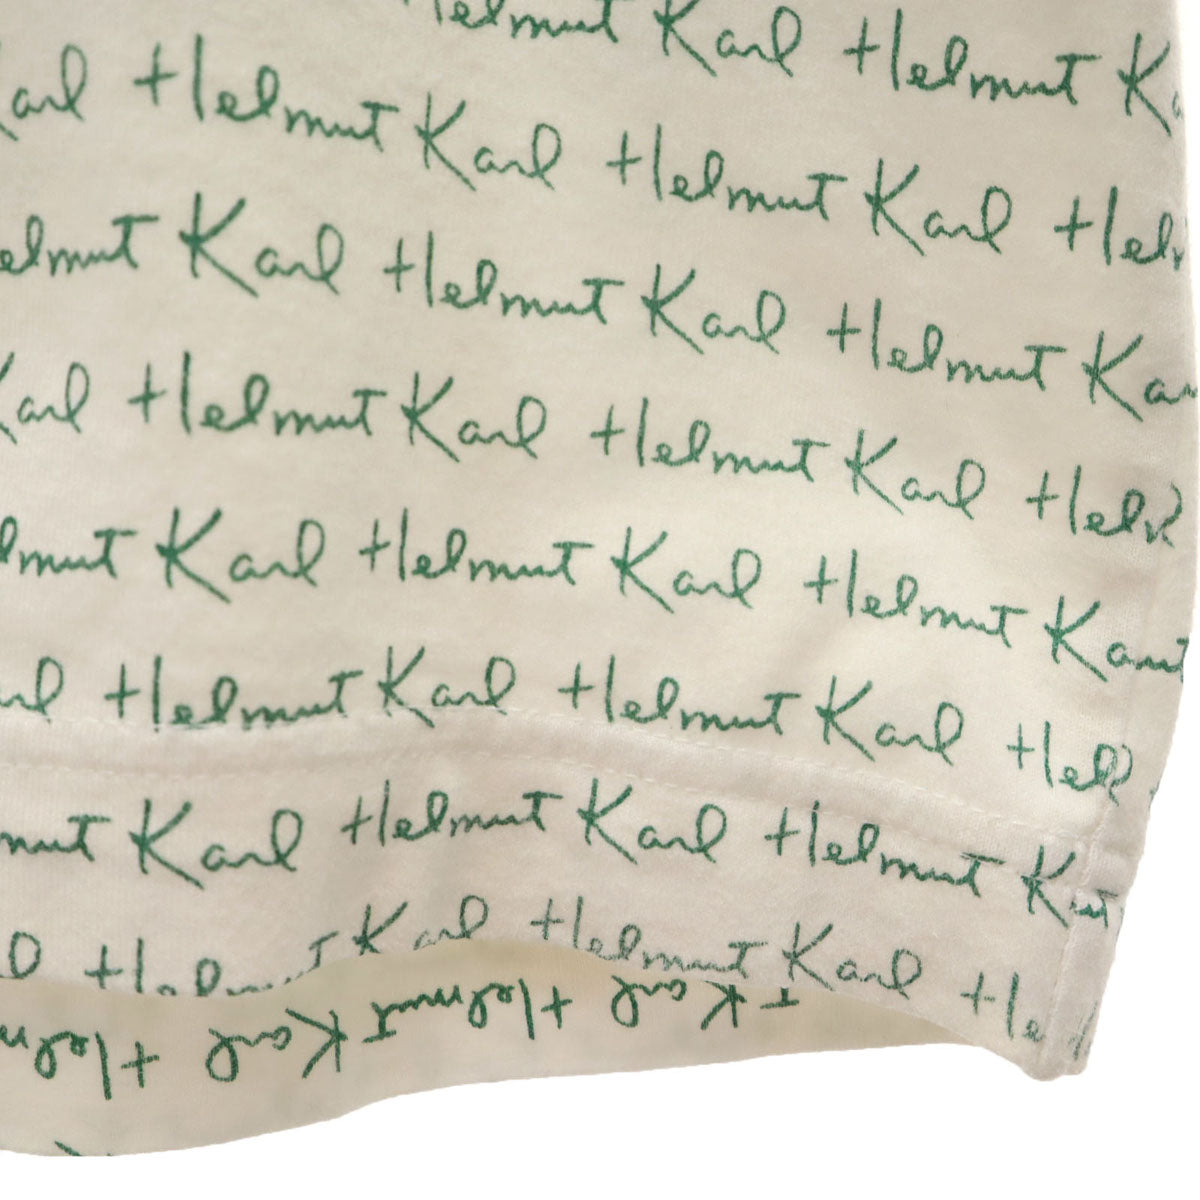 Helmut Karl Helmut K
Karl Helmut Karl Helmut Karl Hel
elmut Karl Helmut Karl Helmut Kar
Karl Helmut Karl Helmut Karl Hel
lmut Karl Helmut Karl Helmut Kar
rl Helmut Karl Helmut Karl Hel
mut Karl Helmut Karl Helmut K
l Helmut Karl Helmut Karl He
Helm Karl Helmut Karl